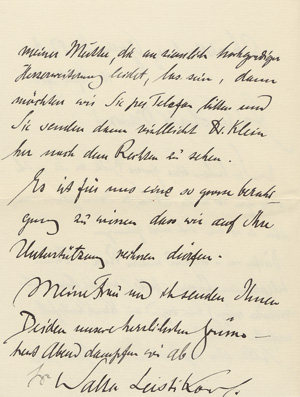 meiner Mutter, die an ziemlich hochgradiger
Herzerweiterung leidet, los sein, dann
möchten wir Sie per Telefon bitten und
Sie senden dann vielleicht Dr. Klein
her nach dem Rechten zu sehen.
Es ist für uns eine so grosse beruhi-
gung zu wissen dass wir auf Ihre
Unterstützung rechnen dürfen.
Meine Frau und ich senden Ihnen
Beiden unsre herzlichsten Grüsse
heut Abend dampfen wir ab
Ihr Walter Leistikow